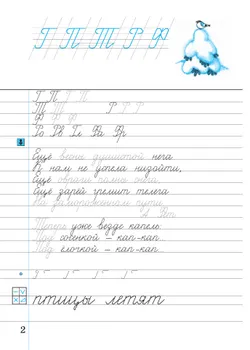 Г П Т Р Ф
Г Г Г Г
П П П Р Р Р
Ф Ф Ф
Ро Рв Фа Фр
Ещё весны душистой нега
К нам не успела низойти,
Ещё овраги полны снега,
Ещё зарёй гремит телега
На замороженном пути.
А. Фет
Теперь уже везде капель:
Под сосенкой – кап-кап...
Под ёлочкой – кап-кап...
птицы летят
2